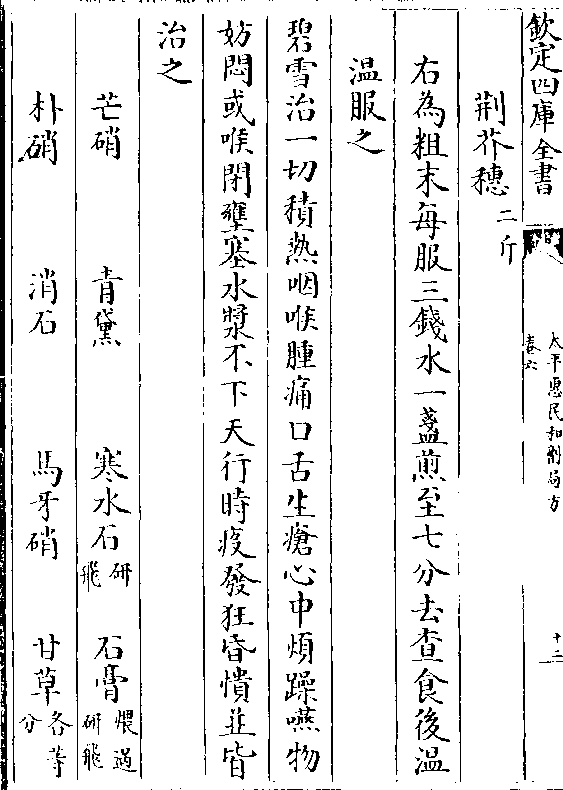 欽定四庫全書
太平惠民和劑局方
卷六
十二
荆芥穗二斤
右為粗末每服三錢水一盞煎至七分去查食後温
温服之
碧雪治一切積熱咽喉腫痛口舌生瘡心中煩躁嚥物
妨悶或喉閉壅塞水漿不下天行時疫發狂昏憒並皆
治之
芒硝 青黛 寒水石研飛 石膏煨過研飛
朴硝 消石 馬牙硝 甘草各等分